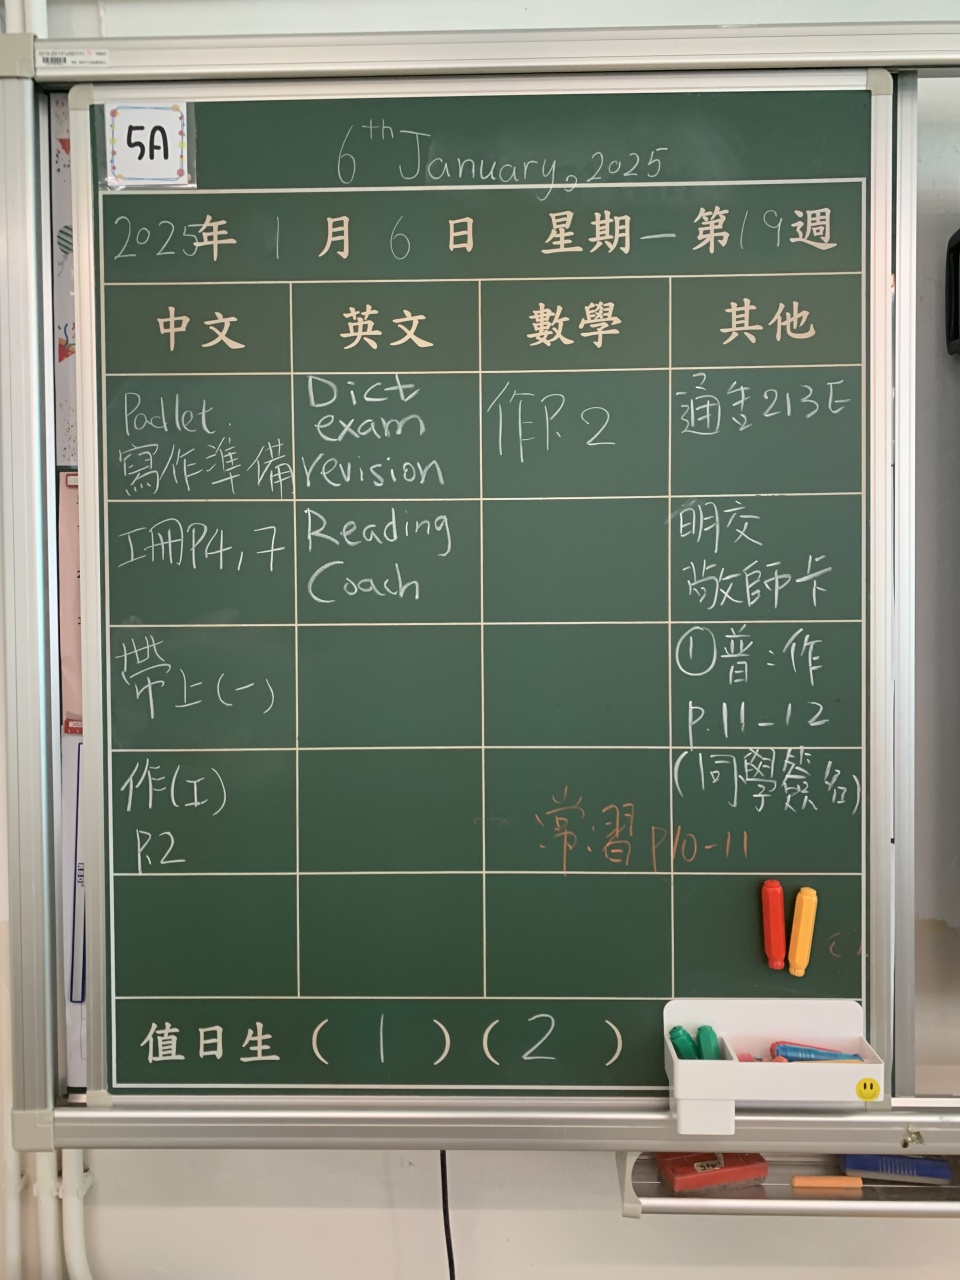 5A
6th January, 2025
2025年 1 月 6 日 星期一 第19週
中文 英文 數學 其他
Padlet
寫作準備
Dict
exam
revision
作P.2
通告213E
工冊P4,7
Reading
Coach
明交
敬師卡
帶上(一)
①普:作
p.11-12
(同學簽名)
作(工)
P.2
常習P10-11
值日生(1)(2)